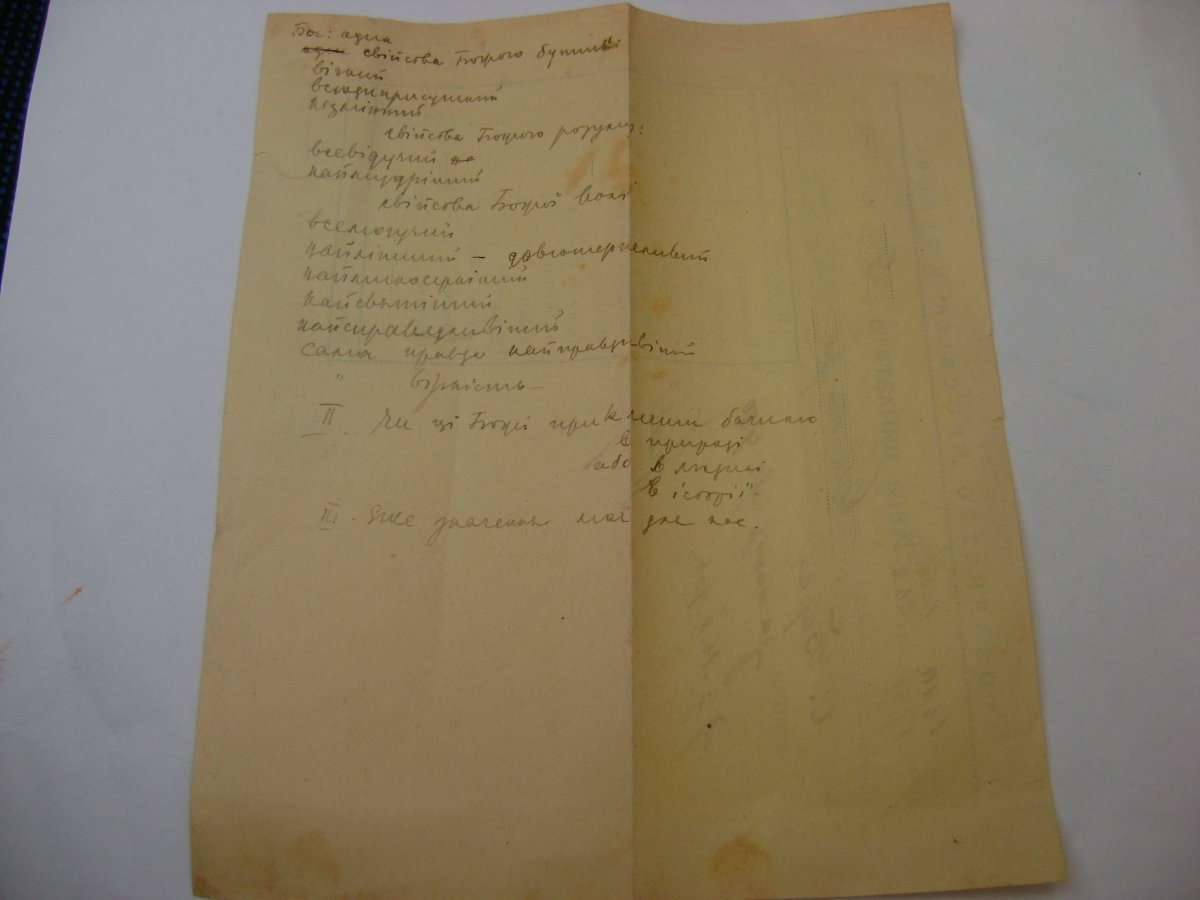 Бог: один
свійства Божого буття:
вічний
всюдиприсутний
незмінний
свійства Божого розуму:
всевідучий
наймудрійший
свійства Божої волі
всемогучий
найліпший — довготерпеливий
наймилосерніший
найсвятіший
найсправедливіший
сама правда найправдивіший
" вірність —
II. Чи ці Божі прикмети бачимо
в природі
або в людині
в історії
III. Яке значення має для нас.